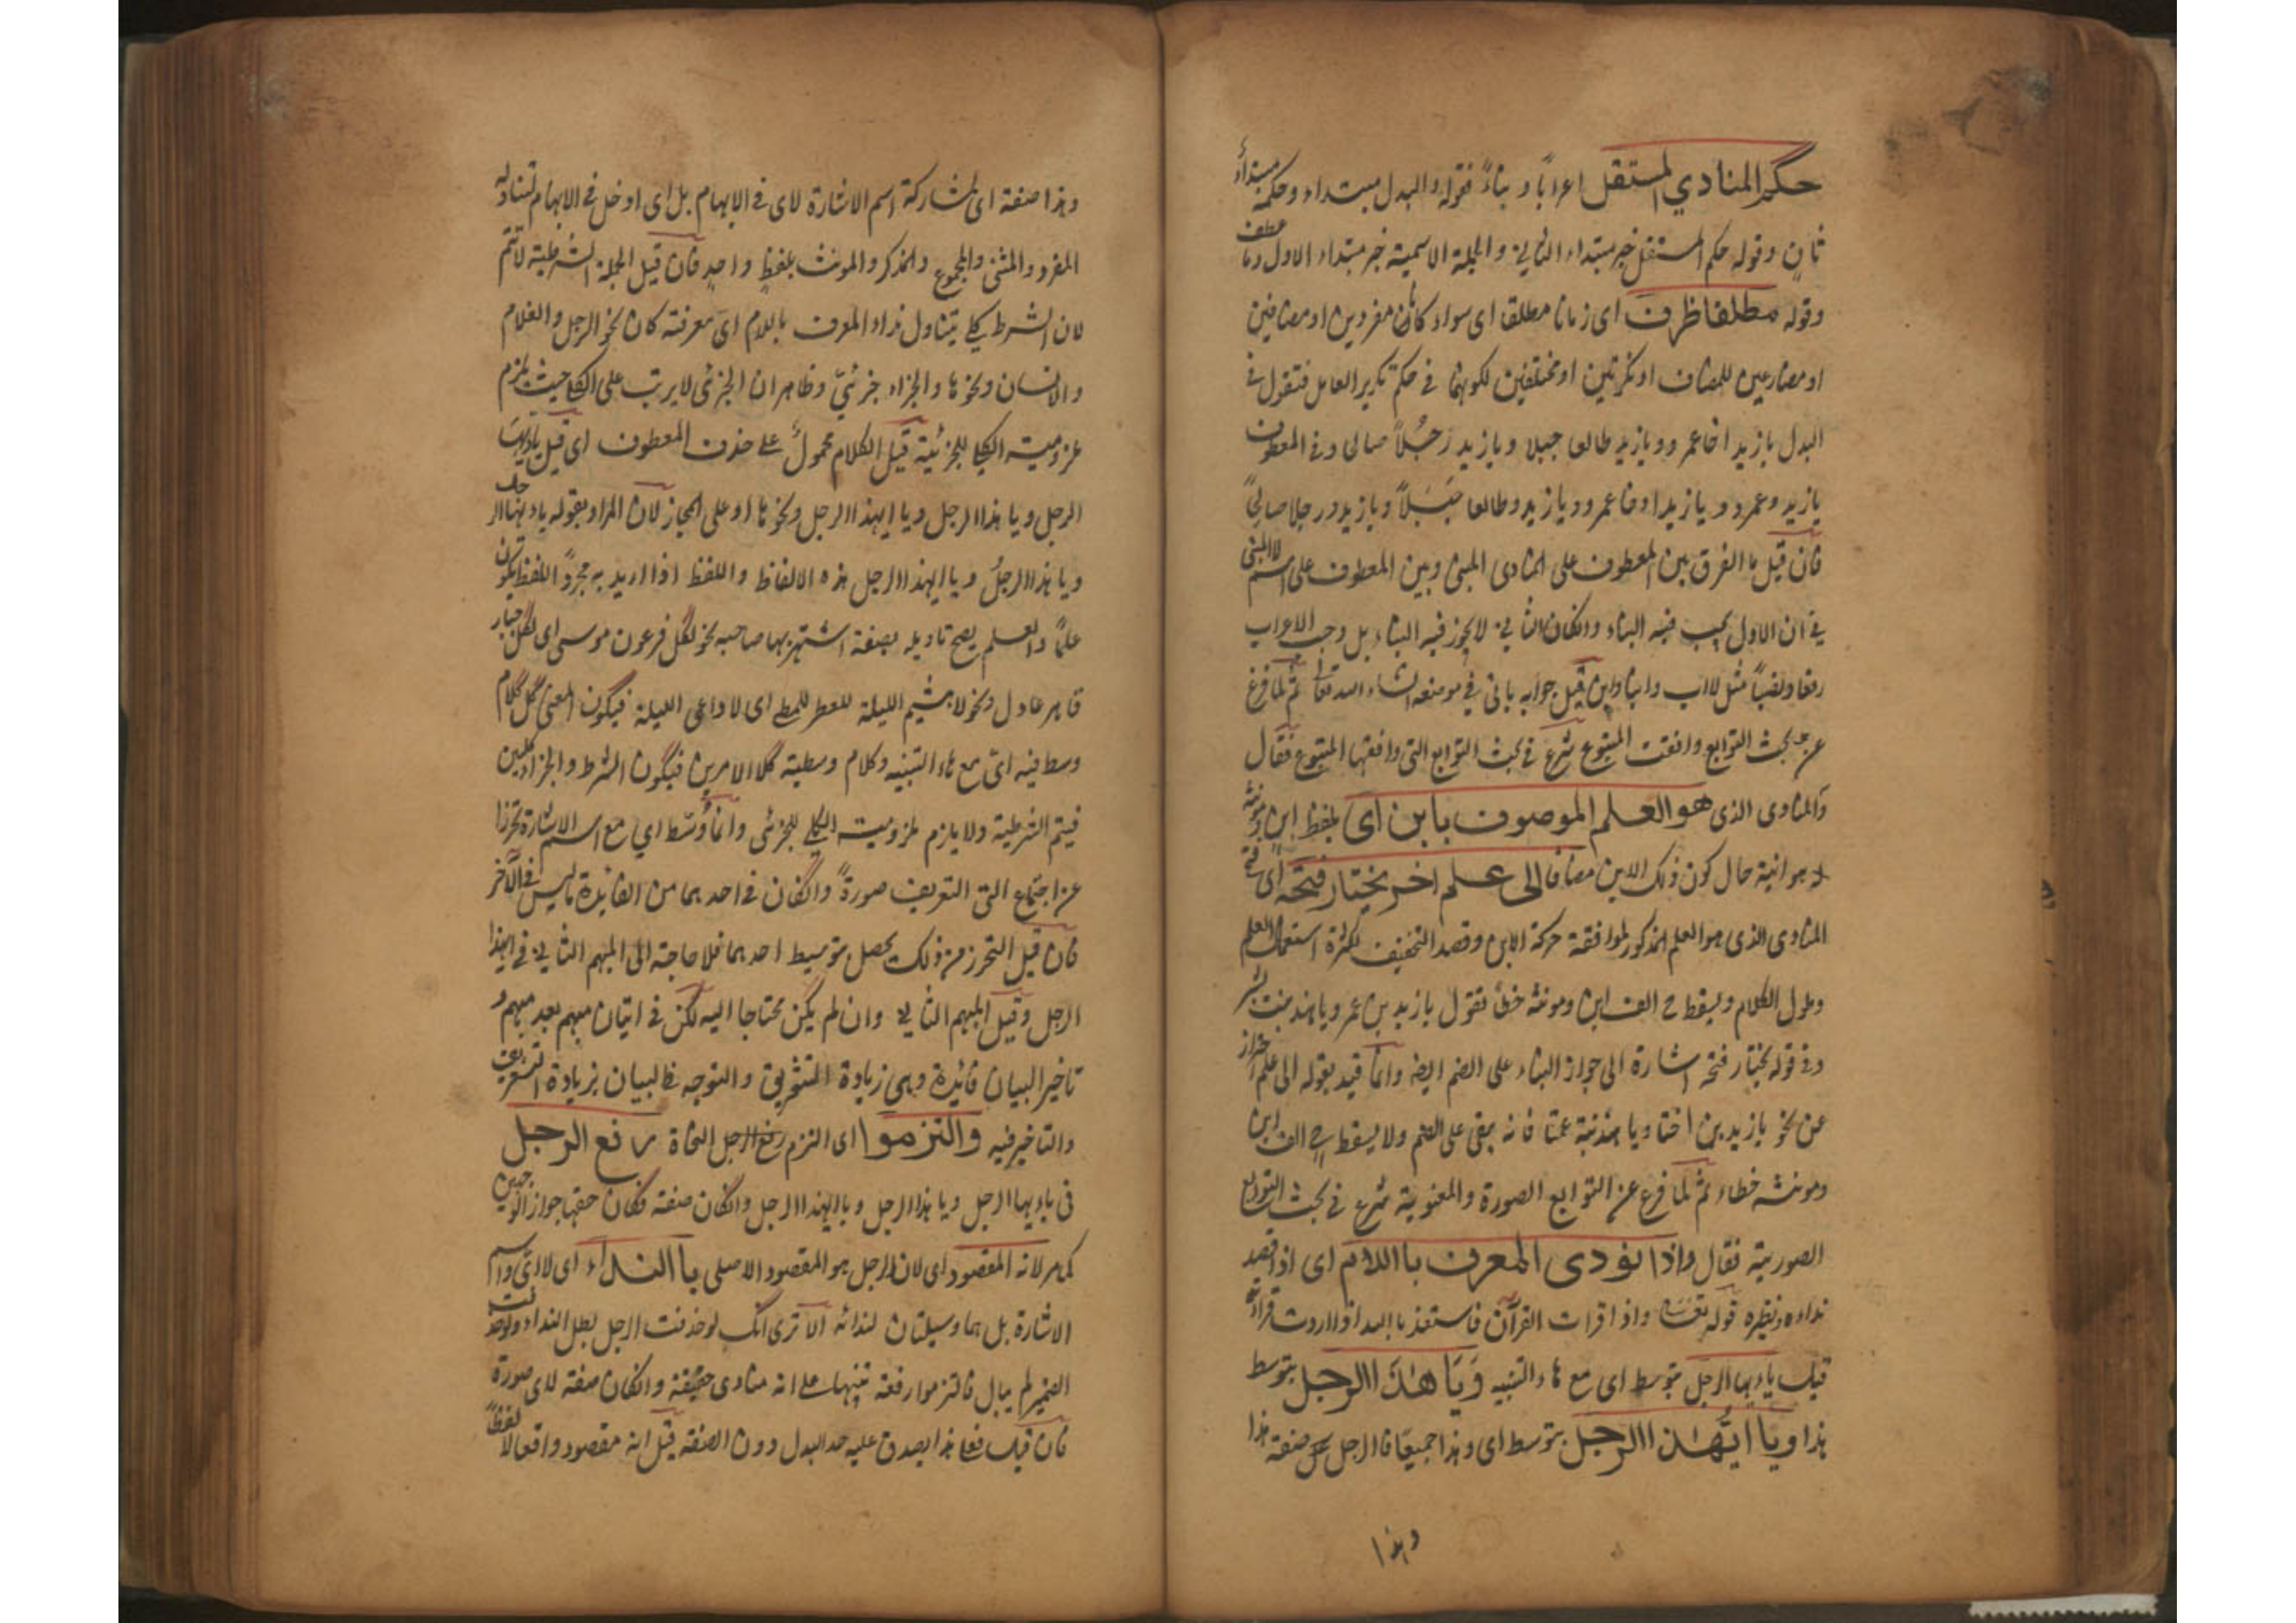 حكم المنادي المستقل اعرابًا و بناءً فقوله والبدل مبتداء وحكمه مبتداءٌ
ثانٍ وقوله حكم المستقل خبر مبتداء الثاني والجملة الاسمية خبر مبتداء الاول وما عطف
وقوله مطلقا ظرف اى زمانا مطلقا اى سواء كانا مفردين او مضافين
او مضارعين للمضاف او نكرتين او مختلفين لكونهما فى حكم تكرير العامل فتقول فى
البدل يا زيد اخا عمرو ويا زيد طالعا جبلا ويا زيد رجُلًا صالحا وفى المعطوف
يا زيد وعمرو ويا زيد واخا عمرو ويا زيد وطالعا جَبَلًا ويا زيد ورجلا صالحًا
فان قيل ما الفرق بين المعطوف على المنادى المبنى وبين المعطوف على اسم لا المبنى
فى ان الاول يجب فيه البناء وانكان الثانى لا يجوز فيه البناء بل وجب الاعراب
رفعا ونصبًا مثل لا اب وابنا وابن قيل جوابه ياتى فى موضعه انشاء الله تعا ثم لما فرغ
عن بحث التوابع وافقت المتبوع شرع فى بحث التوابع التى وافقها المتبوع فقال
والمنادى الذى هو العلم الموصوف بابن اى بلفظ ابن ومونثه
هو ابنة حال كون ذلك الابن مضافا الى علم اخر يختار فتحه اى فتح
المنادى الذى هو العلم المذكور لموافقة حركة الابن وقصد التخفيف لكثرة استعمال العلم
وطول الكلام ويسقط ح الف ابن ومونثه خطًا تقول يا زيد بن عمر ويا هند بنت بشر
وفى قوله يختار فتحه اشارة الى جواز البناء على الضم ايضا وانما قيد بقوله الى علم احتراز
عن نحو يا زيد بن اختنا ويا هند ابنة عمنا فانه يبقى على الضم ولا يسقط ح الف ابن
ومونثه خطاء ثم لما فرغ عن التوابع الصورة والمعنوية شرع فى بحث التوابع
الصورية فقال واذا نودى المعرف باللام اى اذا قصد
نداءه ونظيره قوله تعا واذا قرات القرآن فاستعذ بالله اى اذا اردت قراءة
قيل يا ايها الرجل بتوسط اى مع هاء التنبيه وَيَا هٰذَا الرجل بتوسط
هذا ويا ايّهٰذا الرجل بتوسط اى وهذا جميعًا فالرجل صفة هذا
وهذا
وهذا صفة اى لمشاركة اسم الاشارة لاى فى الابهام بل اى ادخل فى الابهام لتناوله
المفرد والمثنى والمجموع والمذكر والمونث بلفظٍ واحدٍ فان قيل الجملة الشرطية لا تتم
لان الشرط كلى يتناول نداء المعرف باللام اىّ معرفة كان نحو الرجل والغلام
والانسان ونحوها والجزاء جزئيّ وظاهر ان الجزئى لا يرتب على الكلى حيث يلزم
ملزومية الكلى للجزئية قيل الكلام محمولٌ على حذف المعطوف اى قيل يا ايها
الرجل ويا هذا الرجل ويا ايهذا الرجل ونحوها او على المجاز لان المراد بقوله يا ايها الرجل
ويا هذا الرجلُ ويا ايهذا الرجل هذه الالفاظ واللفظ اذا اريد به مجرد اللفظ يكون
علمًا والعلم يصح تاويله بصفة اشتهر بها صاحبه نحو لكل فرعون موسى اى لكل جبار
قاهر عادل ونحو لا هشيم الليلة للمطى اى لا داعى الليلة فيكون المعنى كل كلام
وسط فيه اىّ مع هاء التنبيه وكلام وسطية كلا الامرين فيكون الشرط والجزاء كليين
فيتم الشرطية ولا يلزم ملزومية الكلى للجزئى وانما وُسّط اى مع اسم الاشارة تحرزا
عن اجتماع التى التعريف صورةً وانكان فى احدهما من الفايدة ما ليس فى الآخر
فان قيل التحرز من ذلك يحصل بتوسيط احدهما فلا حاجة الى المبهم الثانى فى ايهذا
الرجل وقيل المبهم الثانى وان لم يكن محتاجا اليه لكن فى اتيان مبهم بعد مبهم و
تاخير البيان فائدة وهى زيادة التشويق والتوجه فالبيان بزيادة التعريف
والتاخير فيه والتزموا اى التزم النحاة رفع الرجل
فى يا ايها الرجل ويا هذا الرجل ويا ايهذا الرجل وانكان صفة فكان حقها جواز الوجهين
كما مر لانه المقصود اى لان الرجل هو المقصود الاصلى بالنداء اى لا اىّ واسم
الاشارة بل هما وسيلتان لندائه الا ترى انك لو حذفت الرجل بطل النداء ولو حذفت
الضمير لم يبال فالتزموا رفعه تنبيها على انه منادى حقيقة وانكان صفة لاى صورة
فان قيل فعلى هذا يصدق عليه حد البدل دون الصفة قيل انه مقصود واقعا لا لفظًا